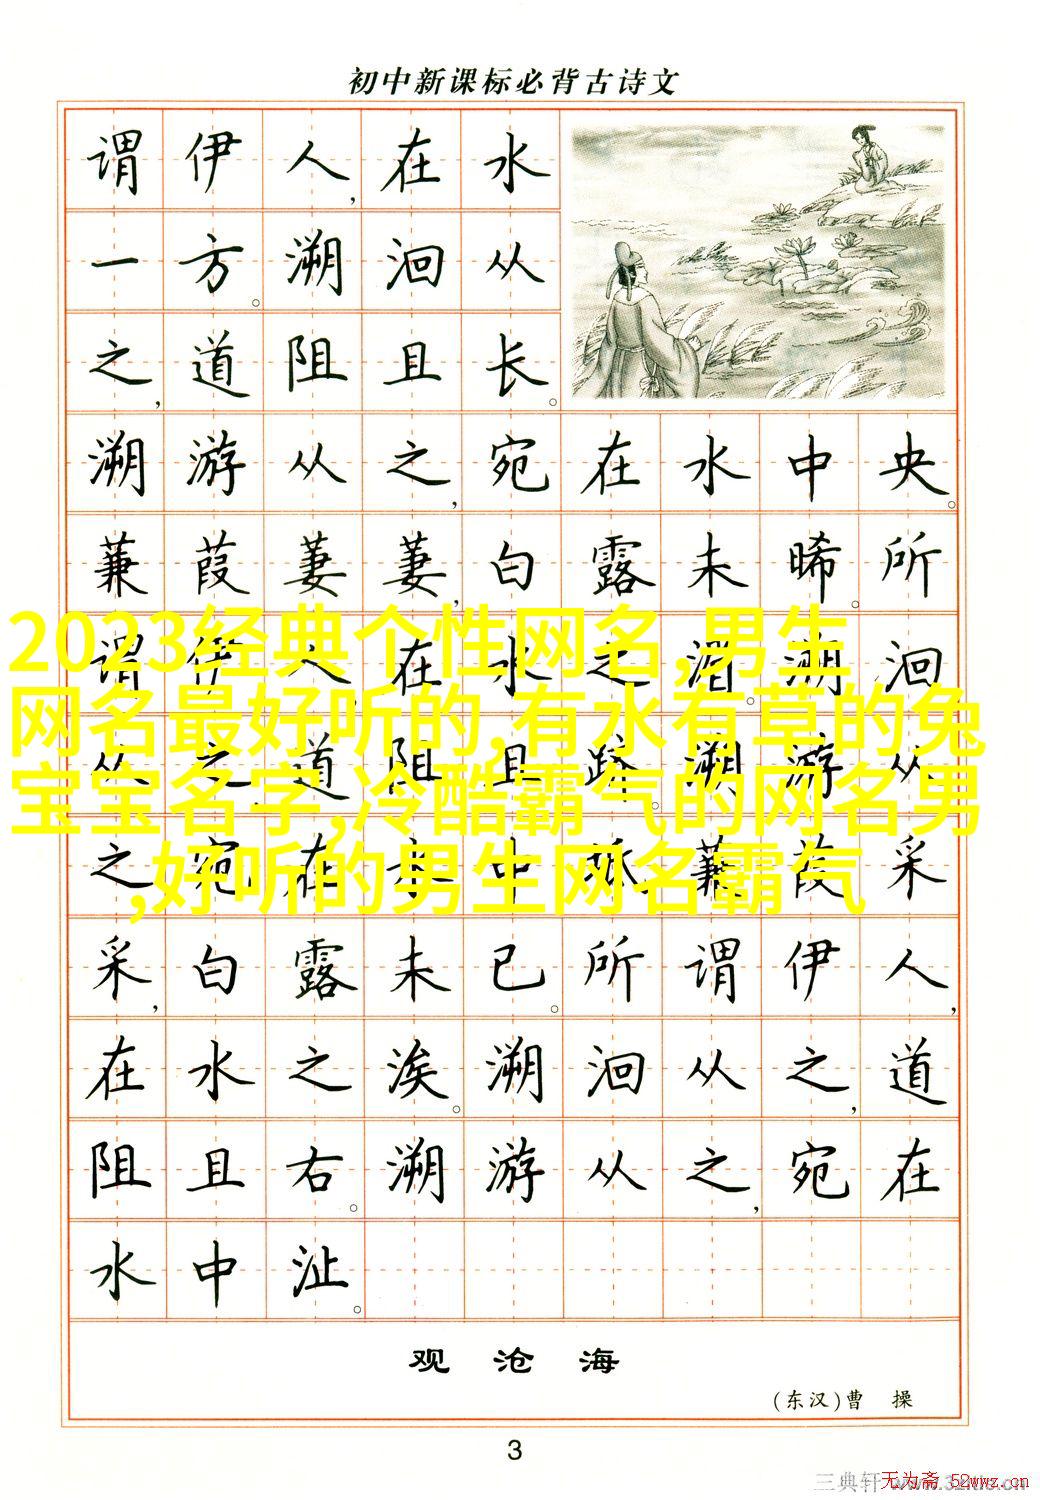 初中新课标必背古诗文
谓伊人,在水
一方。溯洄从
之,道阻且长。
溯游从之,宛在水中央。
蒹葭萋萋,白露未晞。所
谓伊人,在水之湄。溯洄
从之,道阻且跻。溯游从
之,宛在水中坻。蒹葭采
采,白露未已。所谓伊人,
在水之涘。溯洄从之,道
阻且右。溯游从之,宛在
水中沚。
2023经典个性网名,男生
网名最好听的,有水有草的兔
宝宝名字,冷酷霸气的网名男
,好听的男生网名霸气
观沧海
(东汉)曹操
3
三典轩
无为斋 52wwz.cn